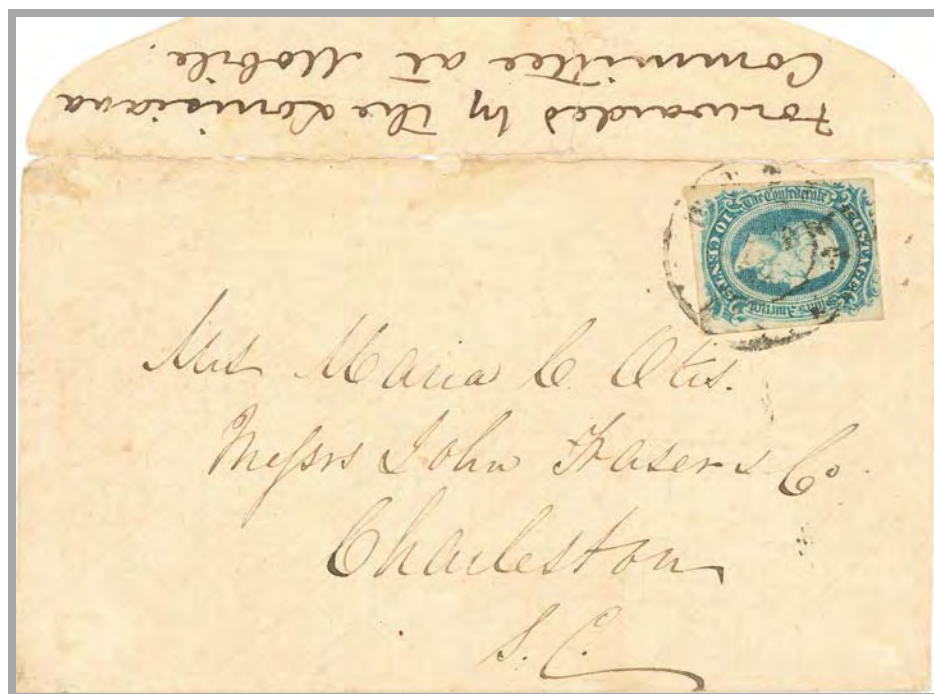 Forwarded by the Louisiana
Committee at Mobile.
The Confederate
States America
POSTAGE
TEN 10 CENTS
Mrs Maria C. Otis.
Messrs John Fraser & Co.
Charleston
S. C.